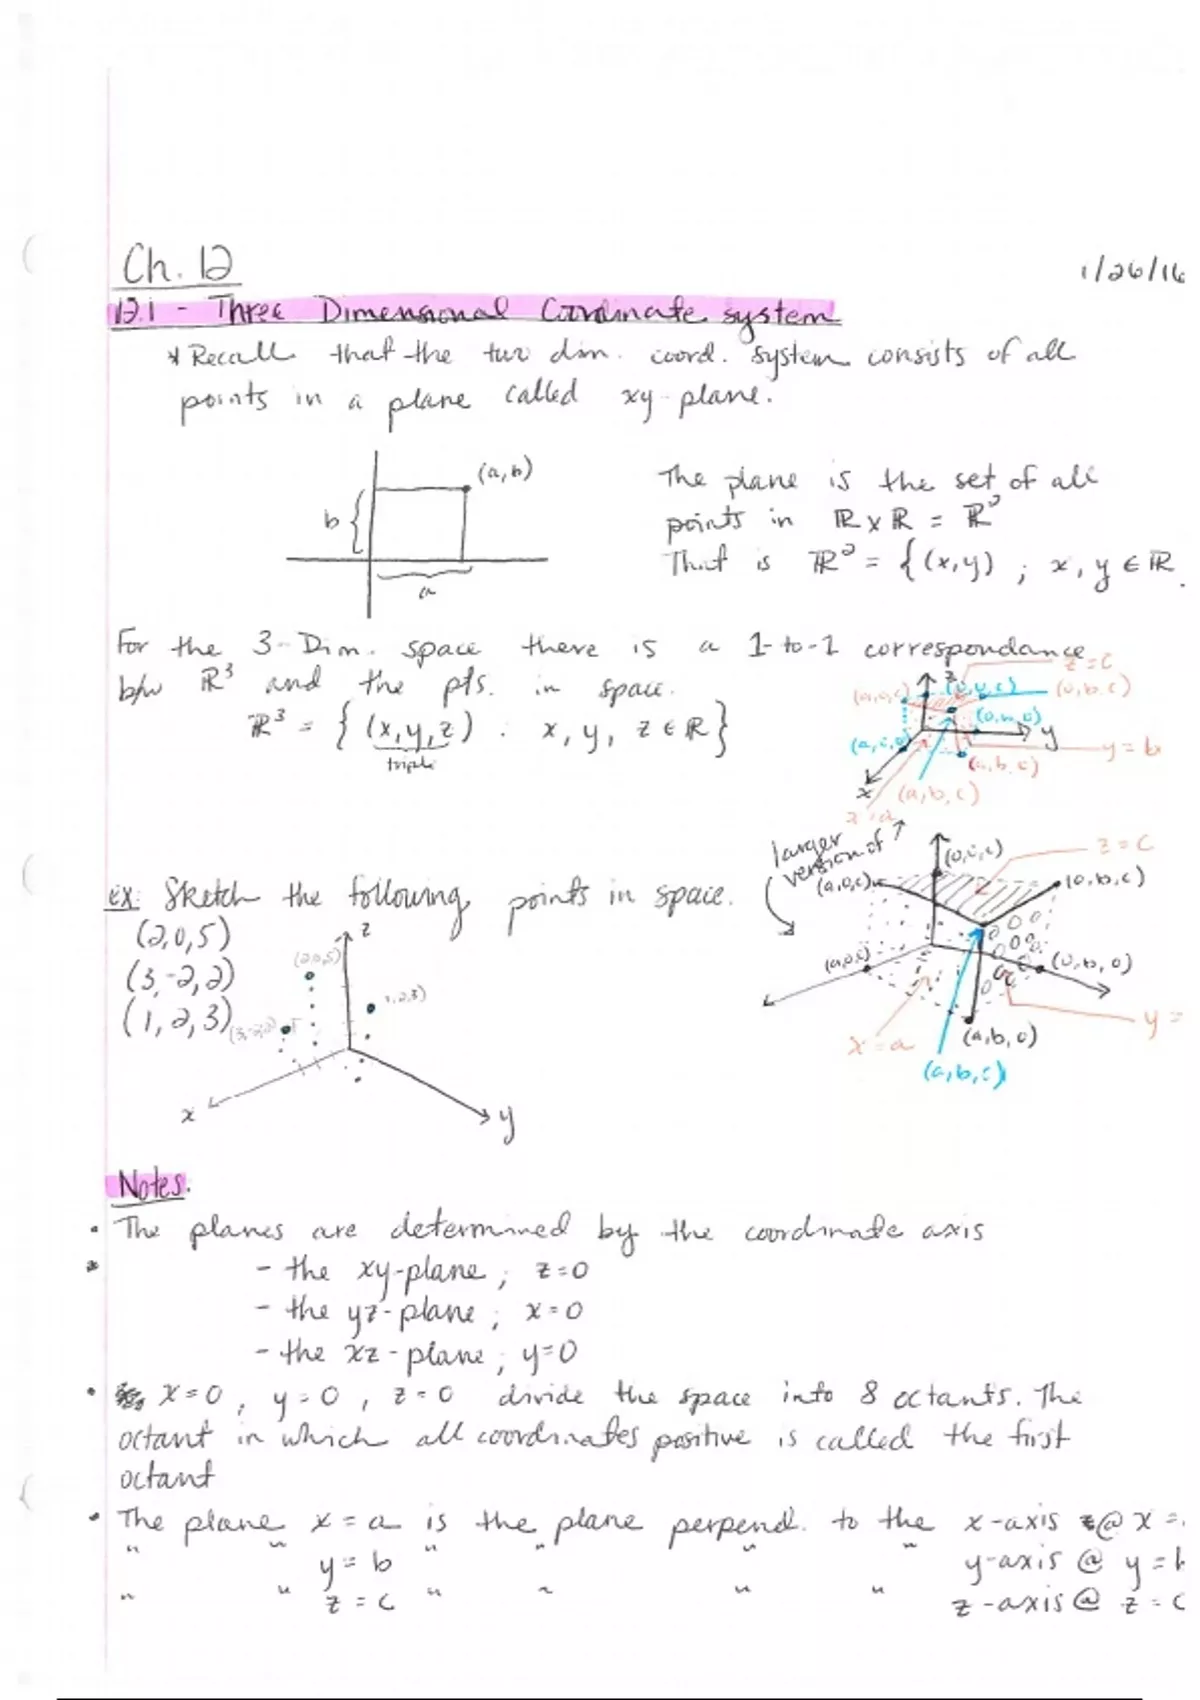 Ch. 12
1/26/16
12.1 - Three Dimensional Coordinate system
* Recall that the two dim. coord. system consists of all
points in a plane called xy-plane.
(a,b)
b
a
The plane is the set of all
points in ℝ x ℝ = ℝ²
That is ℝ² = {(x,y) ; x, y ∈ ℝ
For the 3-Dim. space there is a 1-to-1 correspondance
b/w ℝ³ and the pts. in space.
ℝ³ = { (x,y,z) : x, y, z ∈ ℝ}
triple
z = c
z
(0,0,c)
(0,b,c)
(0,b,0)
y
y = b
(a,b,c)
x
x = a
larger
version of
(0,0,c)
z = c
(a,0,c)
(0,b,c)
(0,b,0)
y =
x = a
(a,b,0)
(a,b,c)
ex: Sketch the following points in space.
(2,0,5)
(3,-2,2)
(1,2,3)
z
(2,0,5)
(1,2,3)
(3,-2,2)
x
y
Notes.
• The planes are determined by the coordinate axis
* - the xy-plane ; z=0
- the yz-plane ; x=0
- the xz-plane ; y=0
• x=0, y=0, z=0 divide the space into 8 octants. The
octant in which all coordinates positive is called the first
octant
• The plane x = a is the plane perpend. to the x-axis @ x =
" " y = b " " " " y-axis @ y = b
" " z = c " " " " z-axis @ z = c